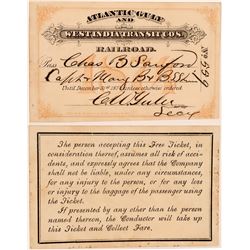 ATLANTIC, GULF
AND
WEST INDIA TRANSIT COS.
RAILROAD.
Pass Chas B Sanford
Capt
Until December 31st 187 unless otherwise ordered
The person accepting this Free Ticket, in
consideration thereof, assumes all risk of acci-
dents, and expressly agrees that the Company
shall not be liable, under any circumstances,
for any injury to the person, or for any loss
or injury to the baggage of the passenger using
the Ticket.
If presented by any other than the person
named thereon, the Conductor will take up
this Ticket and Collect Fare.